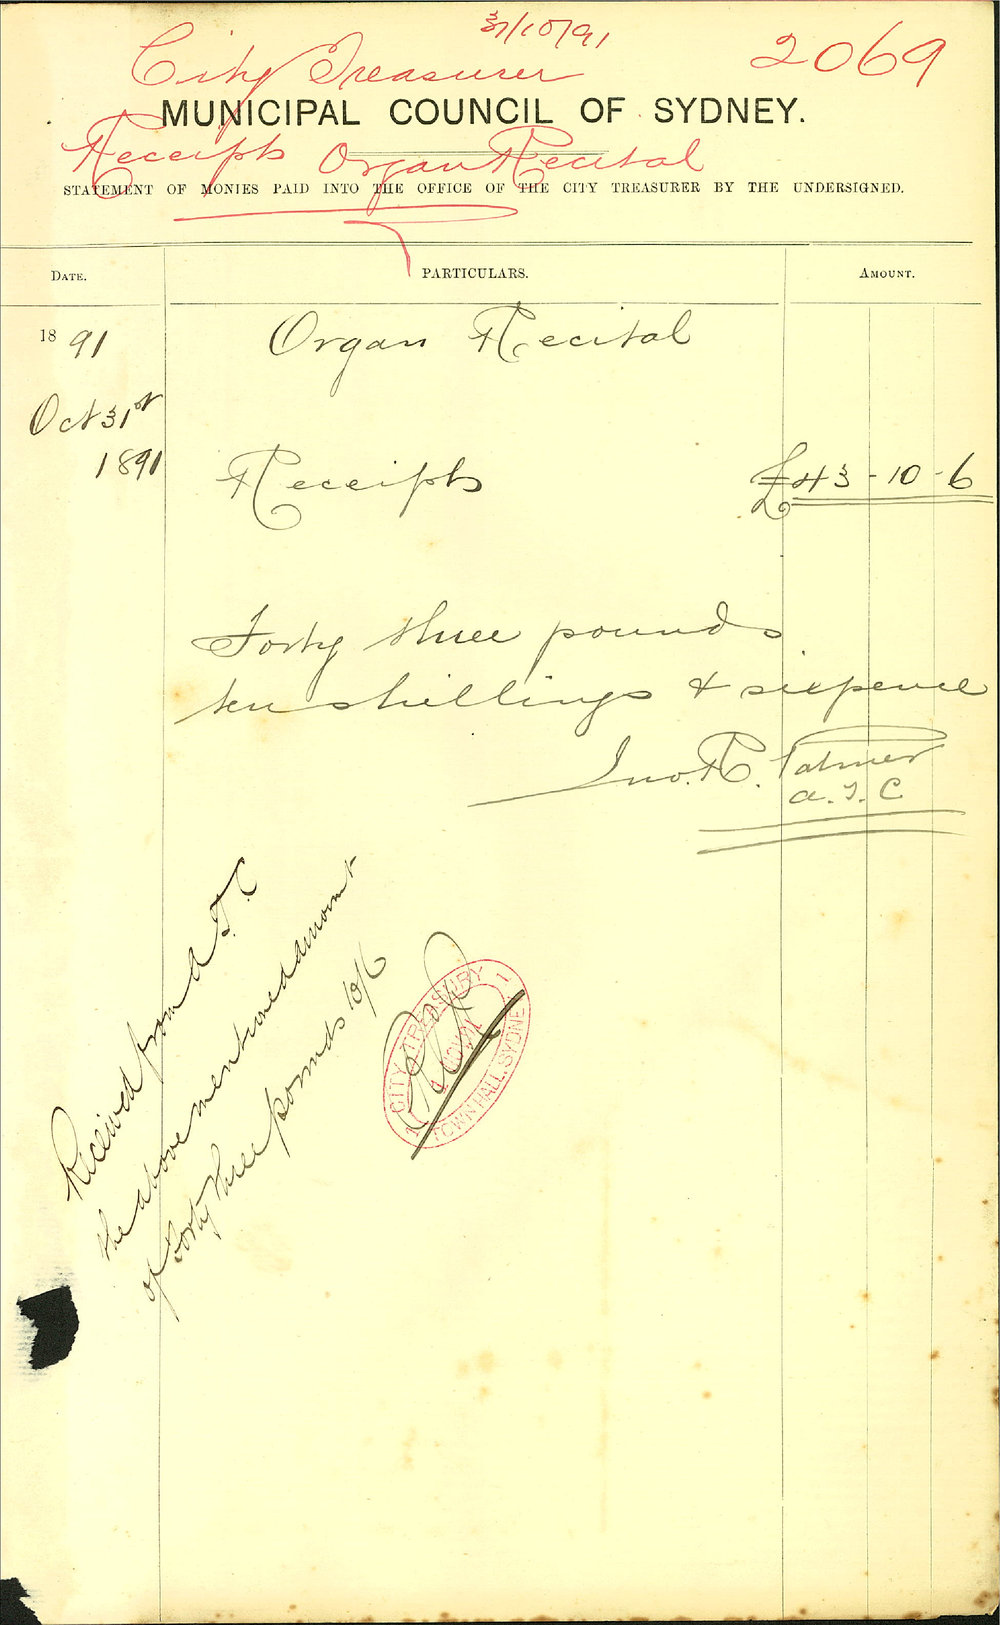 31/10/91
2069
City Treasurer
MUNICIPAL COUNCIL OF SYDNEY.
Receipts Organ Recital
STATEMENT OF MONIES PAID INTO THE OFFICE OF THE CITY TREASURER BY THE UNDERSIGNED.
DATE. PARTICULARS. AMOUNT.
1891 Organ Recital
Oct 31st
1891 Receipts £43-10-6
Forty three pounds
ten shillings & sixpence
Jno. R. Palmer
a. T. C.
Received from A T. C
the above mentioned amount
of Forty three pounds 10/6
CITY TREASURY
NOV 91
TOWN HALL, SYDNEY